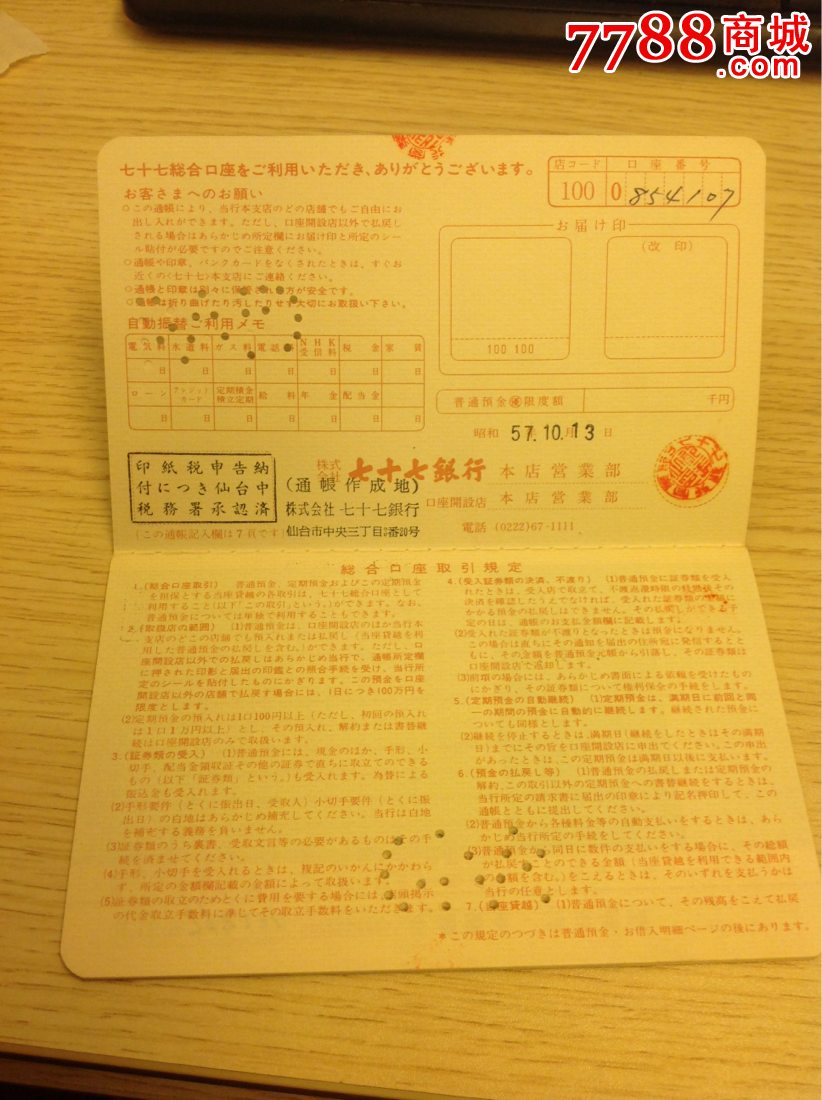 7788商城
.com
七十七総合口座をご利用いただき、ありがとうございます。
お客さまへのお願い
○この通帳により、当行本支店のどの店舗でもご自由にお
出し入れができます。ただし、口座開設店以外で払戻し
される場合はあらかじめ所定欄にお届け印と所定のシー
ル貼付が必要ですのでご注意ください。
○通帳や印章、バンクカードをなくされたときは、すぐお
近くの〈七十七〉本支店にご連絡ください。
○通帳と印章は別々に保管される方が安全です。
○通帳は折り曲げたり汚したりせず大切にお取扱い下さい。
店コード 口座番号
100 0 854107
お届け印
(改印)
100 100
自動振替ご利用メモ
電気料 水道料 ガス料 電話料 NHK受信料 税金 家賃
日 日 日 日 日 日 日
ローン クレジットカード 定期積金積立定期 給料 年金 配当金
日 日 日 日 日 日
普通預金 限度額 千円
昭和 57.10.月13日
印紙税申告納
付につき仙台中
税務署承認済
(この通帳記入欄は7頁です)
(通帳作成地)
株式会社 七十七銀行
仙台市中央三丁目3番20号
株式会社 七十七銀行 本店営業部
口座開設店 本店営業部
電話 (0222)67-1111
総合口座取引規定
1.(総合口座取引) 普通預金、定期預金およびこの定期預金
を担保とする当座貸越の各取引は、七十七総合口座として
利用すること(以下「この取引」という。)ができます。なお、
普通預金については単独で利用することもできます。
2.(取扱店の範囲) (1)普通預金は、口座開設店のほか当行本
支店のどこの店舗でも預入れまたは払戻し(当座貸越を利
用した普通預金の払戻しを含む。)ができます。ただし、口
座開設店以外での払戻しはあらかじめ当行で、通帳所定欄
に押された印影と届出の印鑑との照合手続を受け、当行所
定のシールを貼付したものにかぎります。この預金を口座
開設店以外の店舗で払戻す場合には、1日につき100万円を
限度とします。
(2)定期預金の預入れは1口100円以上(ただし、初回の預入れ
は1口1万円以上)とし、その預入れ、解約または書替継
続は口座開設店のみで取扱います。
3.(証券類の受入) (1)普通預金には、現金のほか、手形、小
切手、配当金領収証その他の証券で直ちに取立てのできる
もの(以下「証券類」という。)も受入れます。為替による
振込金も受入れます。
(2)手形要件(とくに振出日、受取人)小切手要件(とくに振
出日)の白地はあらかじめ補充してください。当行は白地
を補充する義務を負いません。
(3)証券類のうち裏書、受取文言等の必要があるものはその手
続を済ませてください。
(4)手形、小切手を受入れるときは、複記のいかんにかかわら
ず、所定の金額欄記載の金額によって取扱います。
(5)証券類の取立のためとくに費用を要する場合には、店頭掲示
の代金取立手数料に準じてその取立手数料をいただきます。
4.(受入証券類の決済、不渡り) (1)普通預金に証券類を受入
れたときは、受入店で取立て、不渡返還時限の経過後その
決済を確認したうえでなければ、受入れた証券類の金額に
かかる預金の払戻しはできません。その払戻しができる予
定の日は、通帳のお支払金額欄に記載します。
(2)受入れた証券類が不渡りとなったときは預金になりません。
この場合は直ちにその通知を届出の住所宛に発信するとと
もに、その金額を普通預金元帳から引落し、その証券類は
口座開設店で返却します。
(3)前項の場合には、あらかじめ書面による依頼を受けたもの
にかぎり、その証券類について権利保全の手続をします。
5.(定期預金の自動継続) (1)定期預金は、満期日に前回と同
一の期間の預金に自動的に継続します。継続された預金に
ついても同様とします。
(2)継続を停止するときは、満期日(継続をしたときはその満期
日)までにその旨を口座開設店に申出てください。この申出
があったときは、この定期預金は満期日以後に支払います。
6.(預金の払戻し等) (1)普通預金の払戻しまたは定期預金の
解約、この取引以外の定期預金への書替継続をするときは、
当行所定の請求書に届出の印章により記名押印して、この
通帳とともに提出してください。
(2)普通預金から各種料金等の自動支払いをするときは、あら
かじめ当行所定の手続をしてください。
(3)普通預金から同日に数件の支払いをする場合に、その総額
が払戻すことのできる金額(当座貸越を利用できる範囲内
の金額を含む。)をこえるときは、そのいずれを支払うかは
当行の任意とします。
7.(当座貸越) (1)普通預金について、その残高をこえて払戻
*この規定のつづきは普通預金・お借入明細ページの後にあります。